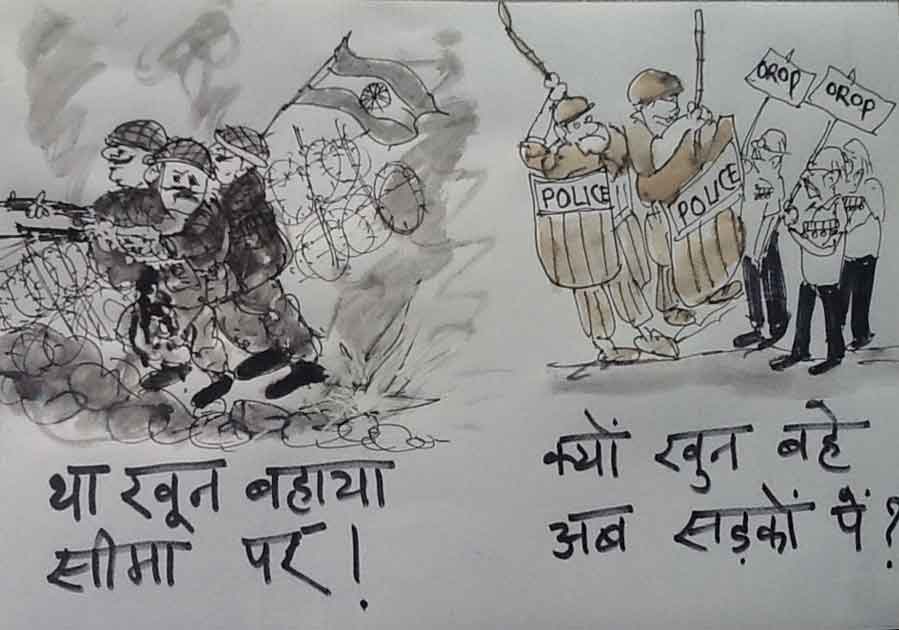 OROP
OROP
POLICE
POLICE
था खून बहाया
सीमा पर!
क्यों खुन बहे
अब सड़कों पें?